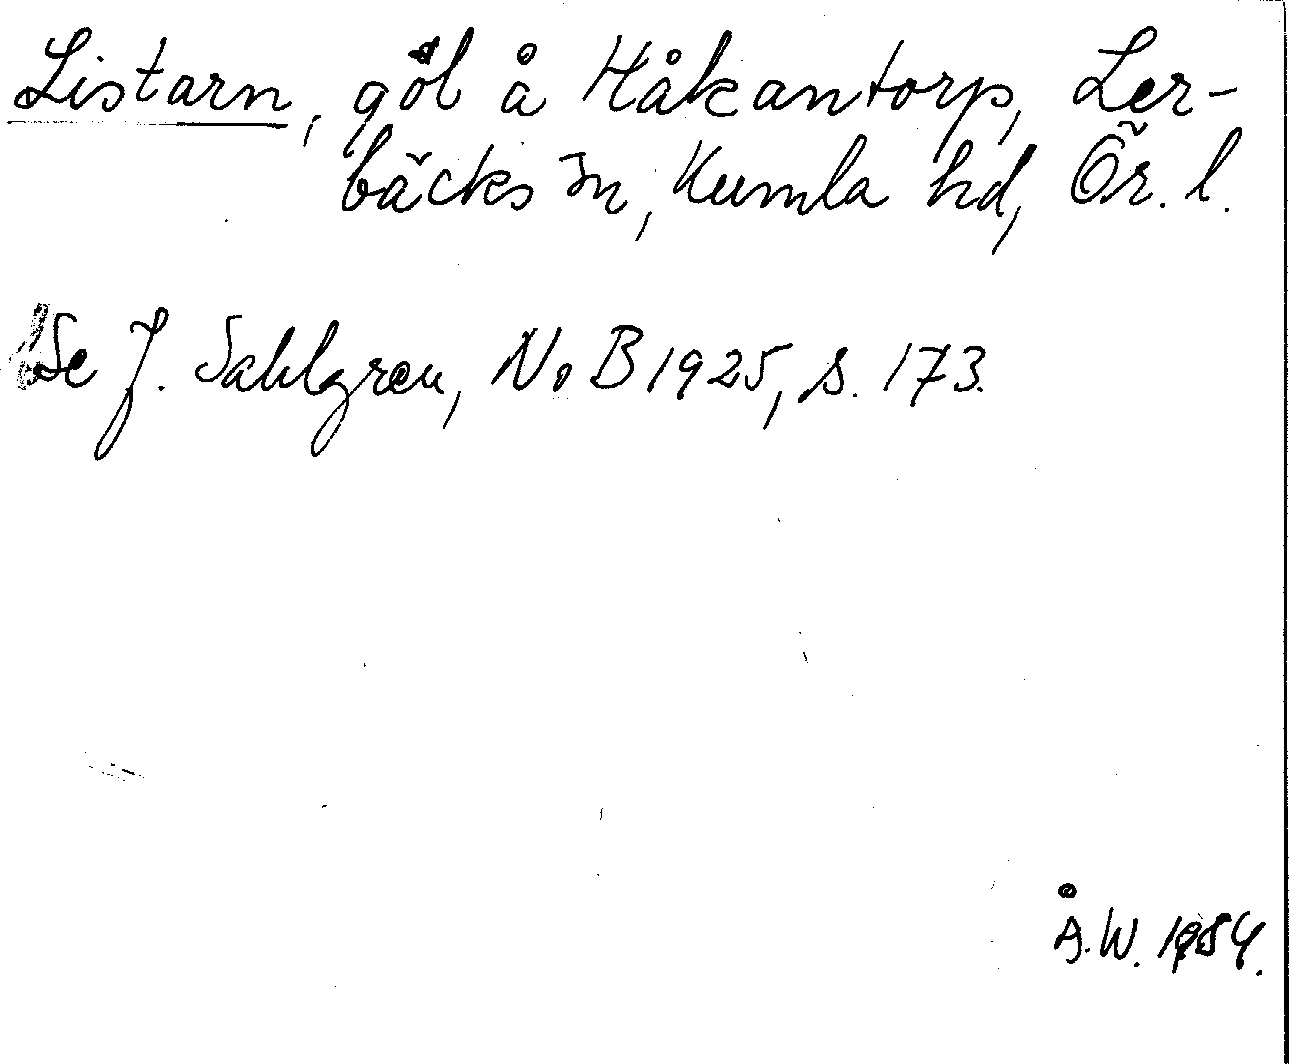 Listarn, göl å Håkantorp, Ler-
bäcks sn, Kumla hd, Ör. l.
Se J. Sahlgren, NoB 1925, s. 173.
Å.W. 1954.